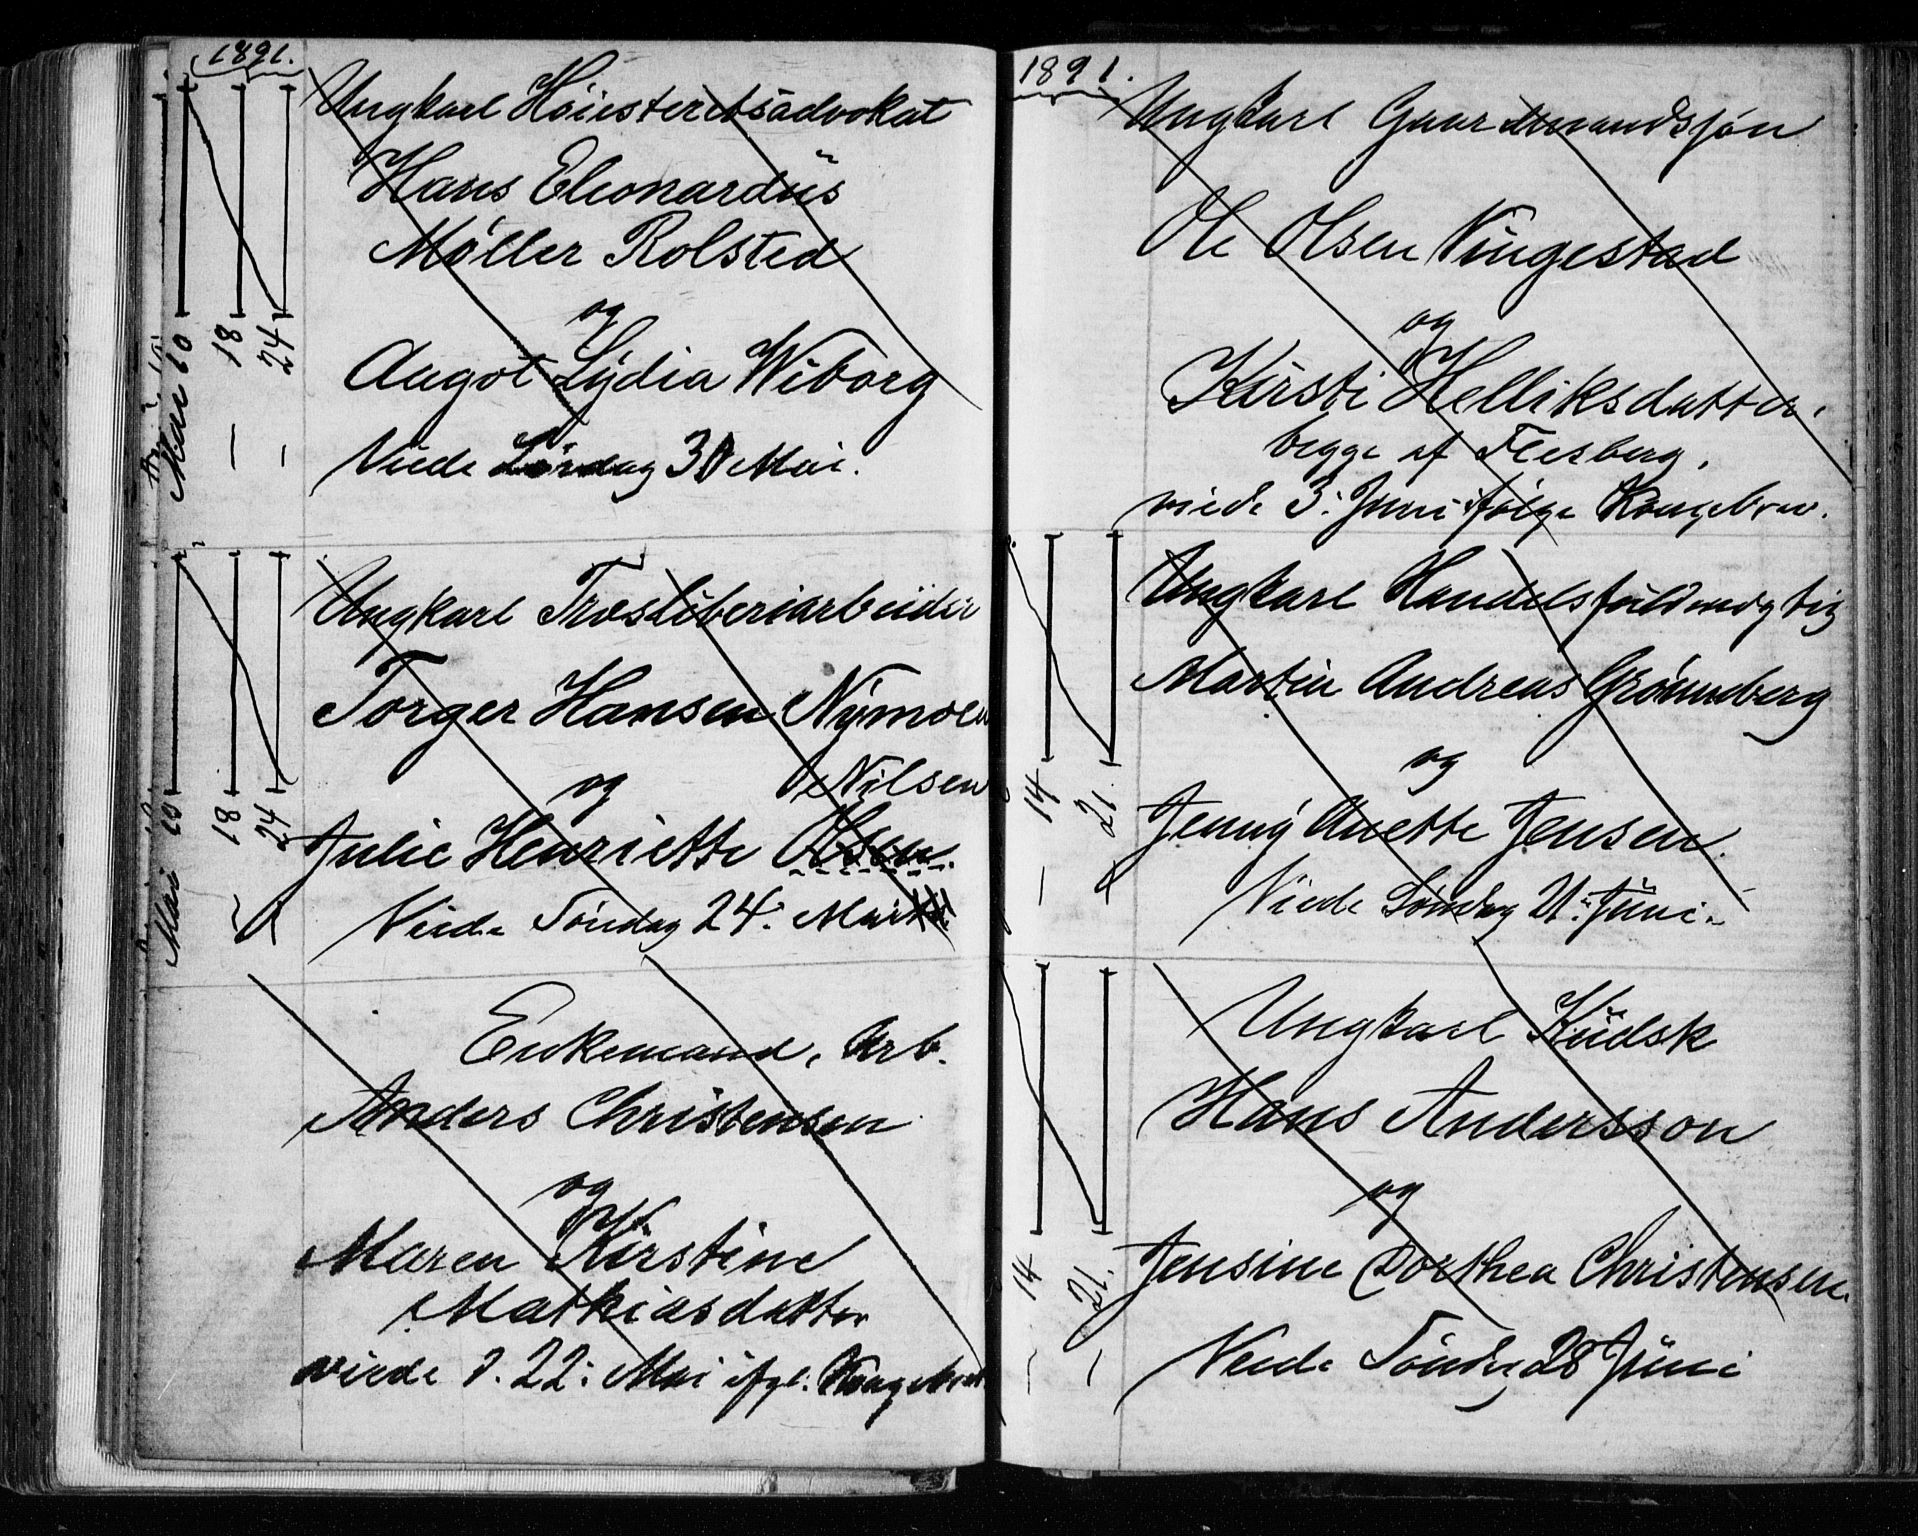 1891.
Ungkarl Høiesteretsadvokat
Hans Eleonardus
Møller Rolsted
og
Angot Lydia Wiborg
Viede Lørdag 30 Mai.
Mai 10
18
24
Ungkarl Træsliberiarbeider
Torger Hansen Nymoen
og Nilsen
Julie Henriette Olsen.
Viede Søndag 24. Mai
Mai 10
18
24
Enkemand, Arb.
Anders Christensen
og
Maren Kirstine
Mathiasdatter
viede d. 22: Mai ifgl. Kongebrev
1891.
Ungkarl Gaardmandssøn
Ole Olsen Vingestad
og
Kirsti Helliksdatter.
begge af Flesberg.
viede 3: Juni ifølge Kongebrev.
Ungkarl Handelsfuldmægtig
Martin Andreas Grønneberg
og
Jenny Anette Jensen.
Viede Søndag 21. Juni.
14
21.
Ungkarl Kudsk
Hans Andersson
og
Jensine Dorthea Christensen.
Viede Søndag 28 Juni
14
21.